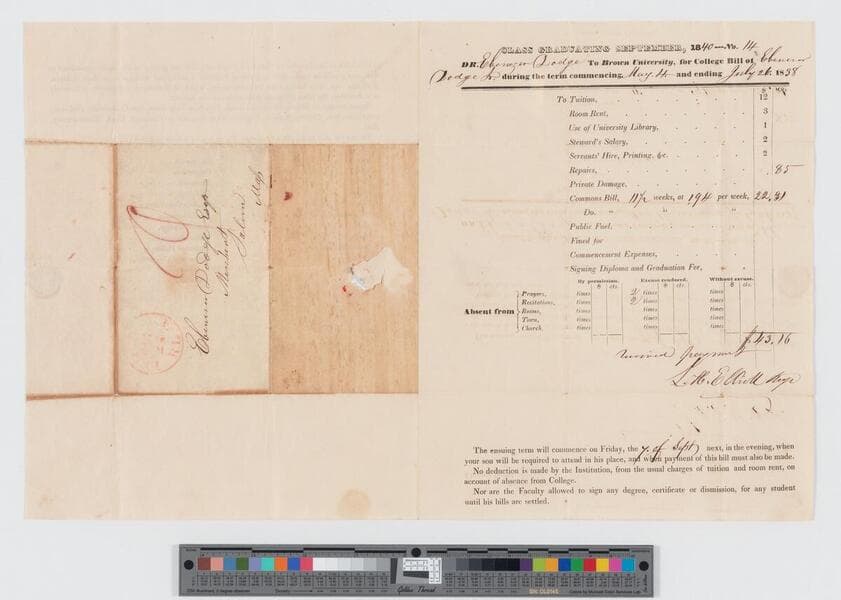 CLASS GRADUATING SEPTEMBER, 1840—No. 14
DR. Ebenezer Dodge To Brown University, for College Bill of Ebenezer
Dodge Jr. during the term commencing, May 4 and ending July 26 1838
To Tuition, 12
Room Rent, 3
Use of University Library, 1
Steward's Salary, 2
Servants' Hire, Printing, &c. 2
Repairs, .85
Private Damage,
Commons Bill, 11½ weeks, at 194 per week, 22,31
Do. " "
Public Fuel,
Fined for
Commencement Expenses,
Signing Diploma and Graduation Fee,
By permission. Excuse rendered. Without excuse.
$ cts. $ cts. $ cts.
Absent from
Prayers, times 2 times times
Recitations, times 2 times times
Rooms, times times times
Town, times times times
Church, times times times
$43,16
Received payment
L. H. Elliott Regr
The ensuing term will commence on Friday, the 7 of Sept next, in the evening, when
your son will be required to attend in his place, and when payment of this bill must also be made.
No deduction is made by the Institution, from the usual charges of tuition and room rent, on
account of absence from College.
Nor are the Faculty allowed to sign any degree, certificate or dismission, for any student
until his bills are settled.
Ebenezer Dodge Esqr
Merchant
Salem
Mass